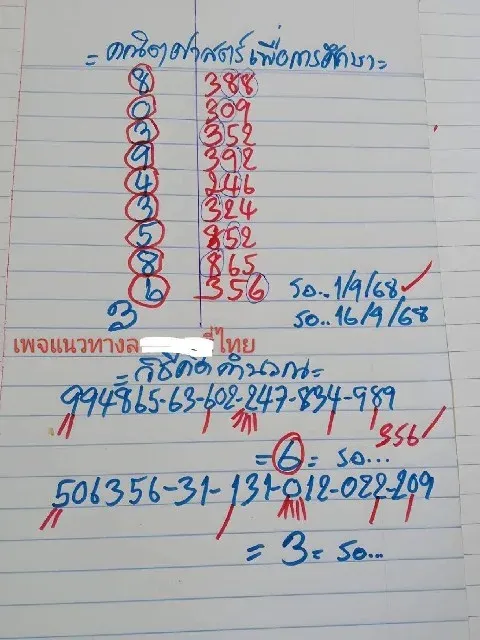 = คณิตศาสตร์เพื่อการศึกษา =
8 388
0 309
3 352
9 392
4 246
3 324
5 852
8 865
6 356 รอ..1/9/68 ✓
3 รอ..16/9/68
เพจแนวทางล ี่ไทย
= วิธีคิดคำนวณ =
994865-63-602-247-834-989
356
= 6 = รอ...
506356-31-131-012-022-209
= 3 = รอ...